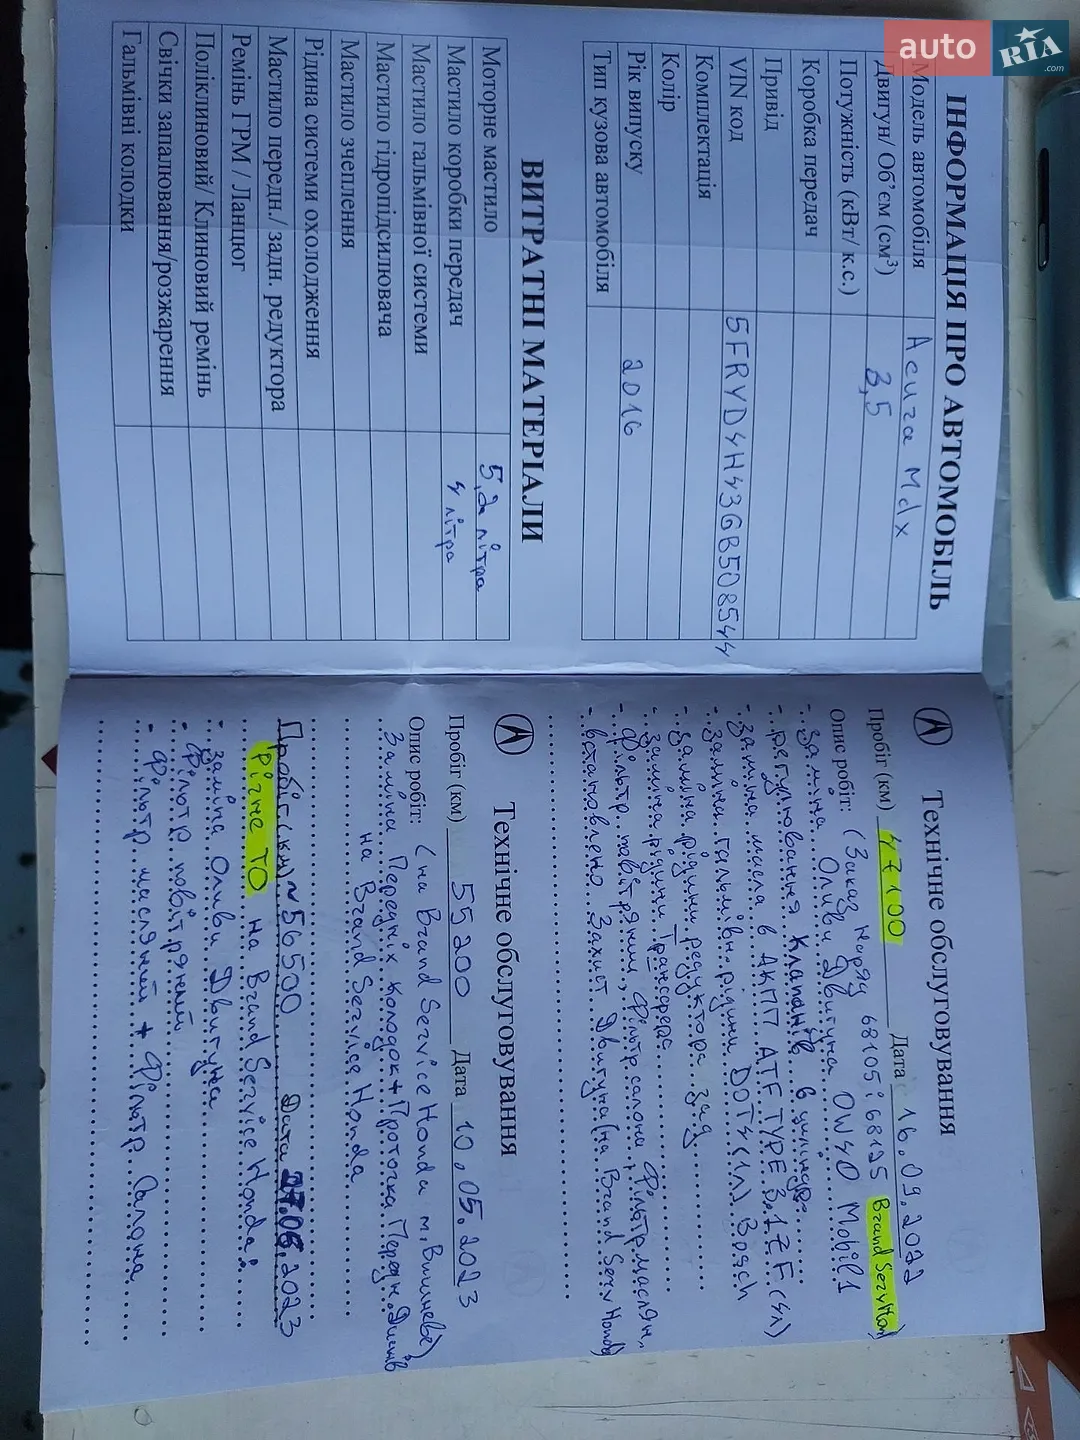 auto
RIA
.com
ІНФОРМАЦІЯ ПРО АВТОМОБІЛЬ
Модель автомобіля Acura Mdx
Двигун/ Об'єм (см³) 3,5
Потужність (кВт/ к.с.)
Коробка передач
Привід
VIN код 5FRYD4H43GB508544
Комплектація
Колір
Рік випуску 2016
Тип кузова автомобіля
ВИТРАТНІ МАТЕРІАЛИ
Моторне мастило 5,2 літра
Мастило коробки передач 4 літра
Мастило гальмівної системи
Мастило гідропідсилювача
Мастило зчеплення
Рідина системи охолодження
Мастило передн./ задн. редуктора
Ремінь ГРМ / Ланцюг
Поліклиновий/ Клиновий ремінь
Свічки запалювання/розжарення
Гальмівні колодки
Технічне обслуговування
Пробіг (км) 47100 Дата 16.09.2022
Опис робіт: (Заказ Наряд 68105 i 68125 Brand Serv Hon)
- заміна Оливи Двигуна 0W40 Mobil1
- регулювання Клапанів в циліндр.
- заміна масла в АКПП ATF TYPE 3.1 ZF (4л)
- заміна гальмівн. рідини DOT4 (1л) Bosch
- заміна рідини редуктора зад
- заміна рідини Трансфера
- Фільтр повітряний, Фільтр салона, Фільтр маслян.
- встановлено Захист Двигуна (на Brand Serv Honda)
Технічне обслуговування
Пробіг (км) 55200 Дата 10.05.2023
Опис робіт: (на Brand Service Honda м. Вишневе)
Заміна Передніх колодок + Проточка Передн. Дисків
на Brand Service Honda
Пробіг (км) ~ 56500 Дата 27.06.2023
Річне ТО на Brand Service Honda:
- заміна Оливи Двигуна
- Фільтр повітряний
- Фільтр масляний + Фільтр Салона